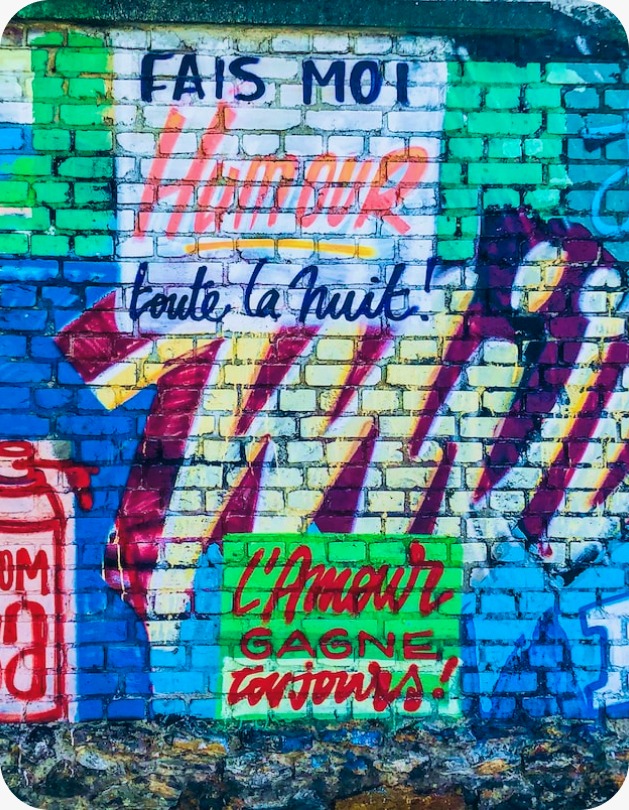 FAIS MOI
Humour
toute la nuit!
L'Amour
GAGNE
toujours!
OM